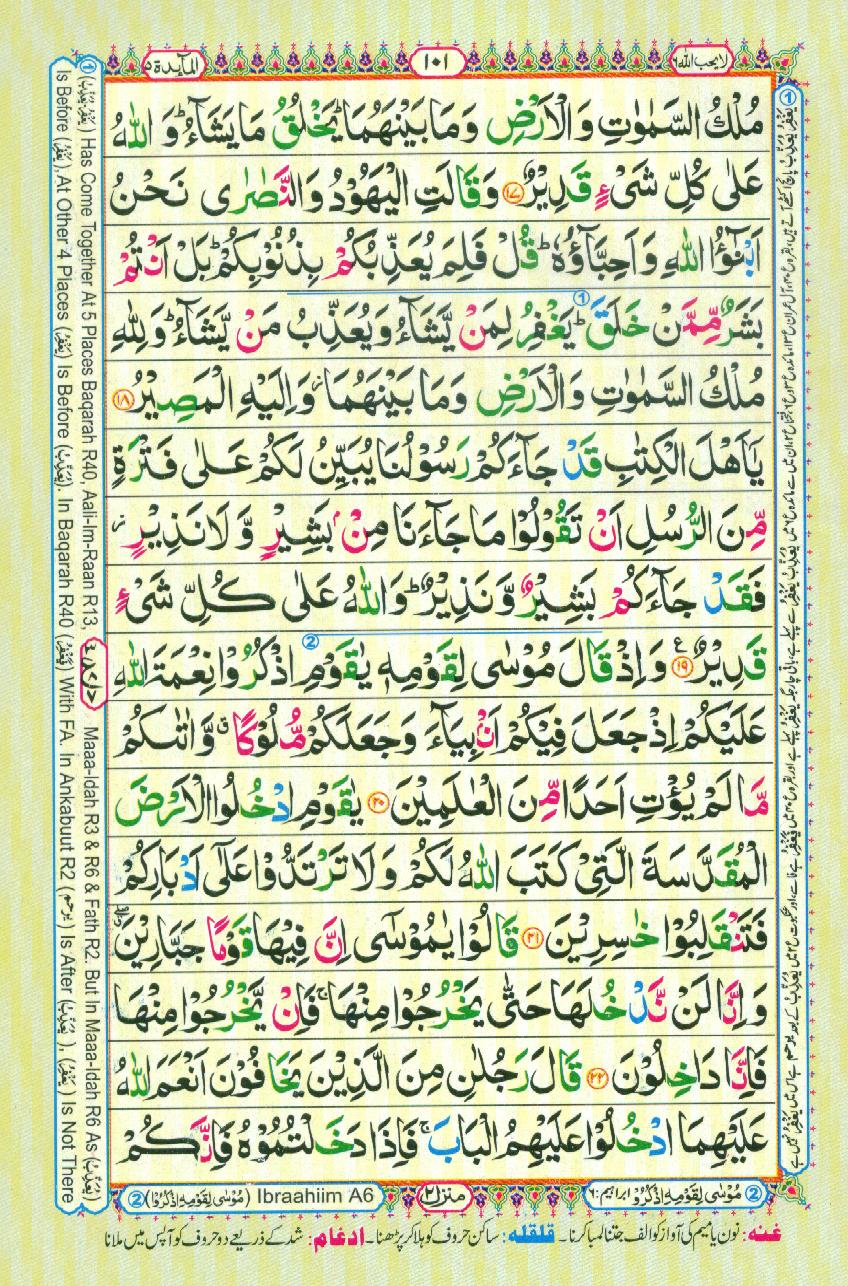 لا یحب اللہ ۶
۱۰۱
المآىِٕدة ۵
مُلْكُ السَّمٰوٰتِ وَالْاَرْضِ وَمَا بَيْنَهُمَا ؕ يَخْلُقُ مَا يَشَآءُ ؕ وَاللّٰهُ
عَلٰى كُلِّ شَىْءٍ قَدِيْرٌ ﴿۱۷﴾ وَقَالَتِ الْيَهُوْدُ وَالنَّصٰرٰى نَحْنُ
اَبْنٰٓؤُا اللّٰهِ وَاَحِبَّآؤُهٗ ؕ قُلْ فَلِمَ يُعَذِّبُكُمْ بِذُنُوْبِكُمْ ؕ بَلْ اَنْتُمْ
بَشَرٌ مِّمَّنْ خَلَقَ ؕ ① يَغْفِرُ لِمَنْ يَّشَآءُ وَيُعَذِّبُ مَنْ يَّشَآءُ ؕ وَلِلّٰهِ
مُلْكُ السَّمٰوٰتِ وَالْاَرْضِ وَمَا بَيْنَهُمَا ز وَاِلَيْهِ الْمَصِيْرُ ﴿۱۸﴾
يٰۤاَهْلَ الْكِتٰبِ قَدْ جَآءَكُمْ رَسُوْلُنَا يُبَيِّنُ لَكُمْ عَلٰى فَتْرَةٍ
مِّنَ الرُّسُلِ اَنْ تَقُوْلُوْا مَا جَآءَنَا مِنْۢ بَشِيْرٍ وَّلَا نَذِيْرٍ ز
فَقَدْ جَآءَكُمْ بَشِيْرٌ وَّنَذِيْرٌ ؕ وَاللّٰهُ عَلٰى كُلِّ شَىْءٍ
قَدِيْرٌ ﴿۱۹﴾ ع وَاِذْ قَالَ مُوْسٰى لِقَوْمِهٖ ② يٰقَوْمِ اذْكُرُوْا نِعْمَةَ اللّٰهِ
عَلَيْكُمْ اِذْ جَعَلَ فِيْكُمْ اَنْۢبِيَآءَ وَجَعَلَكُمْ مُّلُوْكًا ق وَّاٰتٰىكُمْ
مَّا لَمْ يُؤْتِ اَحَدًا مِّنَ الْعٰلَمِيْنَ ﴿۲۰﴾ يٰقَوْمِ ادْخُلُوا الْاَرْضَ
الْمُقَدَّسَةَ الَّتِىْ كَتَبَ اللّٰهُ لَكُمْ وَلَا تَرْتَدُّوْا عَلٰٓى اَدْبَارِكُمْ
فَتَنْقَلِبُوْا خٰسِرِيْنَ ﴿۲۱﴾ قَالُوْا يٰمُوْسٰٓى اِنَّ فِيْهَا قَوْمًا جَبَّارِيْنَ
وَاِنَّا لَنْ نَّدْخُلَهَا حَتّٰى يَخْرُجُوْا مِنْهَا ۚ فَاِنْ يَّخْرُجُوْا مِنْهَا
فَاِنَّا دَاخِلُوْنَ ﴿۲۲﴾ قَالَ رَجُلٰنِ مِنَ الَّذِيْنَ يَخَافُوْنَ اَنْعَمَ اللّٰهُ
عَلَيْهِمَا ادْخُلُوْا عَلَيْهِمُ الْبَابَ ۚ فَاِذَا دَخَلْتُمُوْهُ فَاِنَّكُمْ
② مُوْسٰى لِقَوْمِهِ اذْكُرُوْا ابراہیم: ۶
منزل ۲
② (مُوْسٰى لِقَوْمِهِ اذْكُرُوْا) Ibraahiim A6
غنه: نون یا میم کی آواز کو الف جتنا لمبا کرنا۔ قلقله: ساکن حروف کو ہلا کر پڑھنا۔ ادغام: شد کے ذریعے دو حروف کو آپس میں ملانا
① (يَغْفِرُ يُعَذِّبُ) Has Come Together At 5 Places Baqarah R40, Aali-Im-Raan R13, Maaa-Idah R3 & R6 & Fath R2. But In Maaa-Idah R6 As (يُعَذِّبُ)
Is Before (يَغْفِرُ). At Other 4 Places (يَغْفِرُ) Is Before (يُعَذِّبُ). In Baqarah R40 (فَيَغْفِرُ) With FA. In Ankabuut R2 (يرحم) Is After (يُعَذِّبُ), (يَغْفِرُ) Is Not There